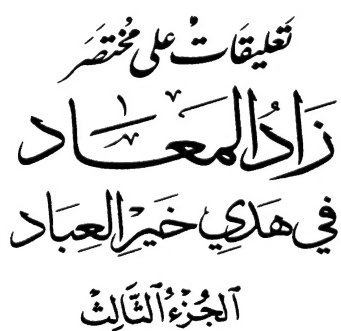 تعليقات على مختصر
زاد المعاد
في هدي خير العباد
الجزء الثالث